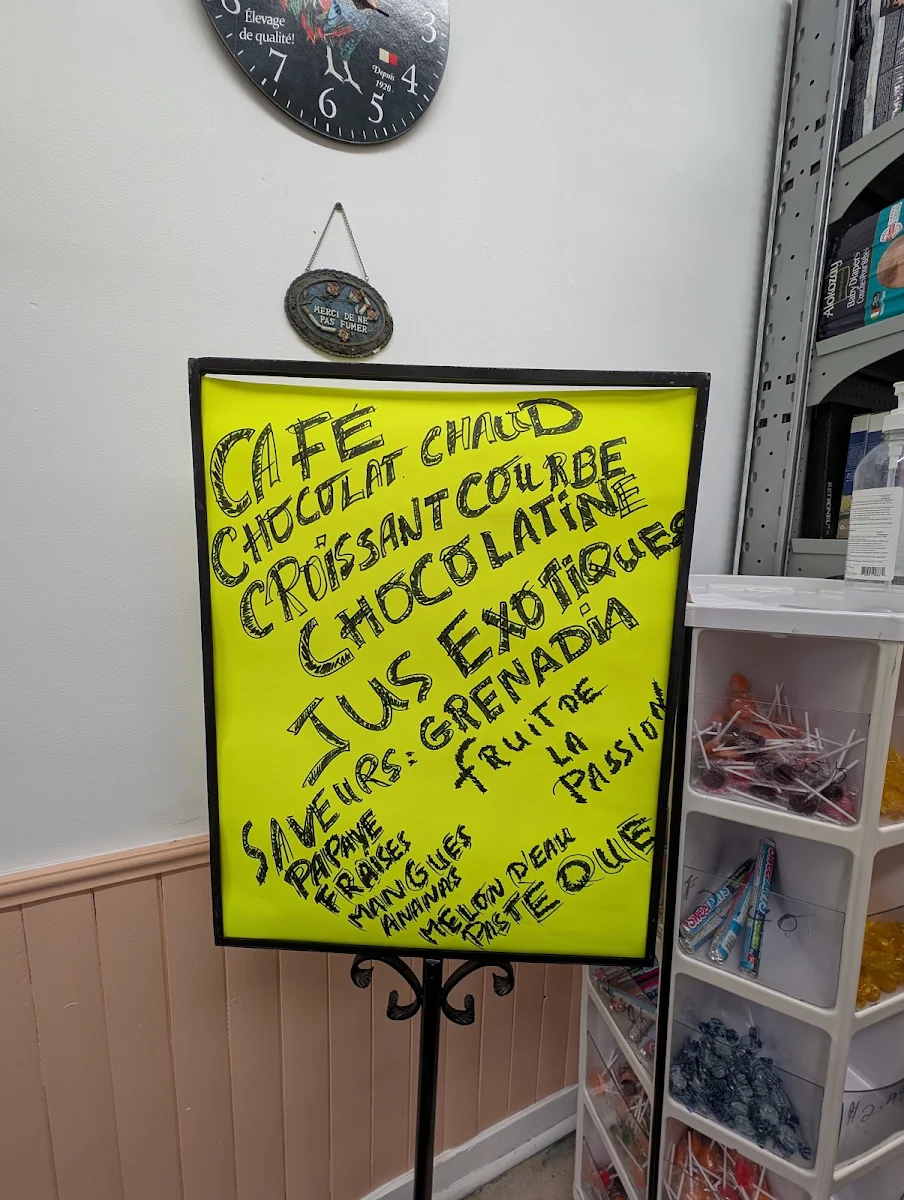 Élevage
de qualité!
3
4
5
6
7
8
Depuis
1920
MERCI DE NE
PAS FUMER
CAFÉ
CHOCOLAT CHAUD
CROISSANT COURBE
CHOCOLATINE
JUS EXOTIQUES
SAVEURS: GRENADIA
FRUIT DE
LA
PASSION
PAPAYE
FRAISES
MANGUES
ANANAS
MELON D'EAU
PASTÈQUE
Alokozay
Baby Diapers
Couches Jetables